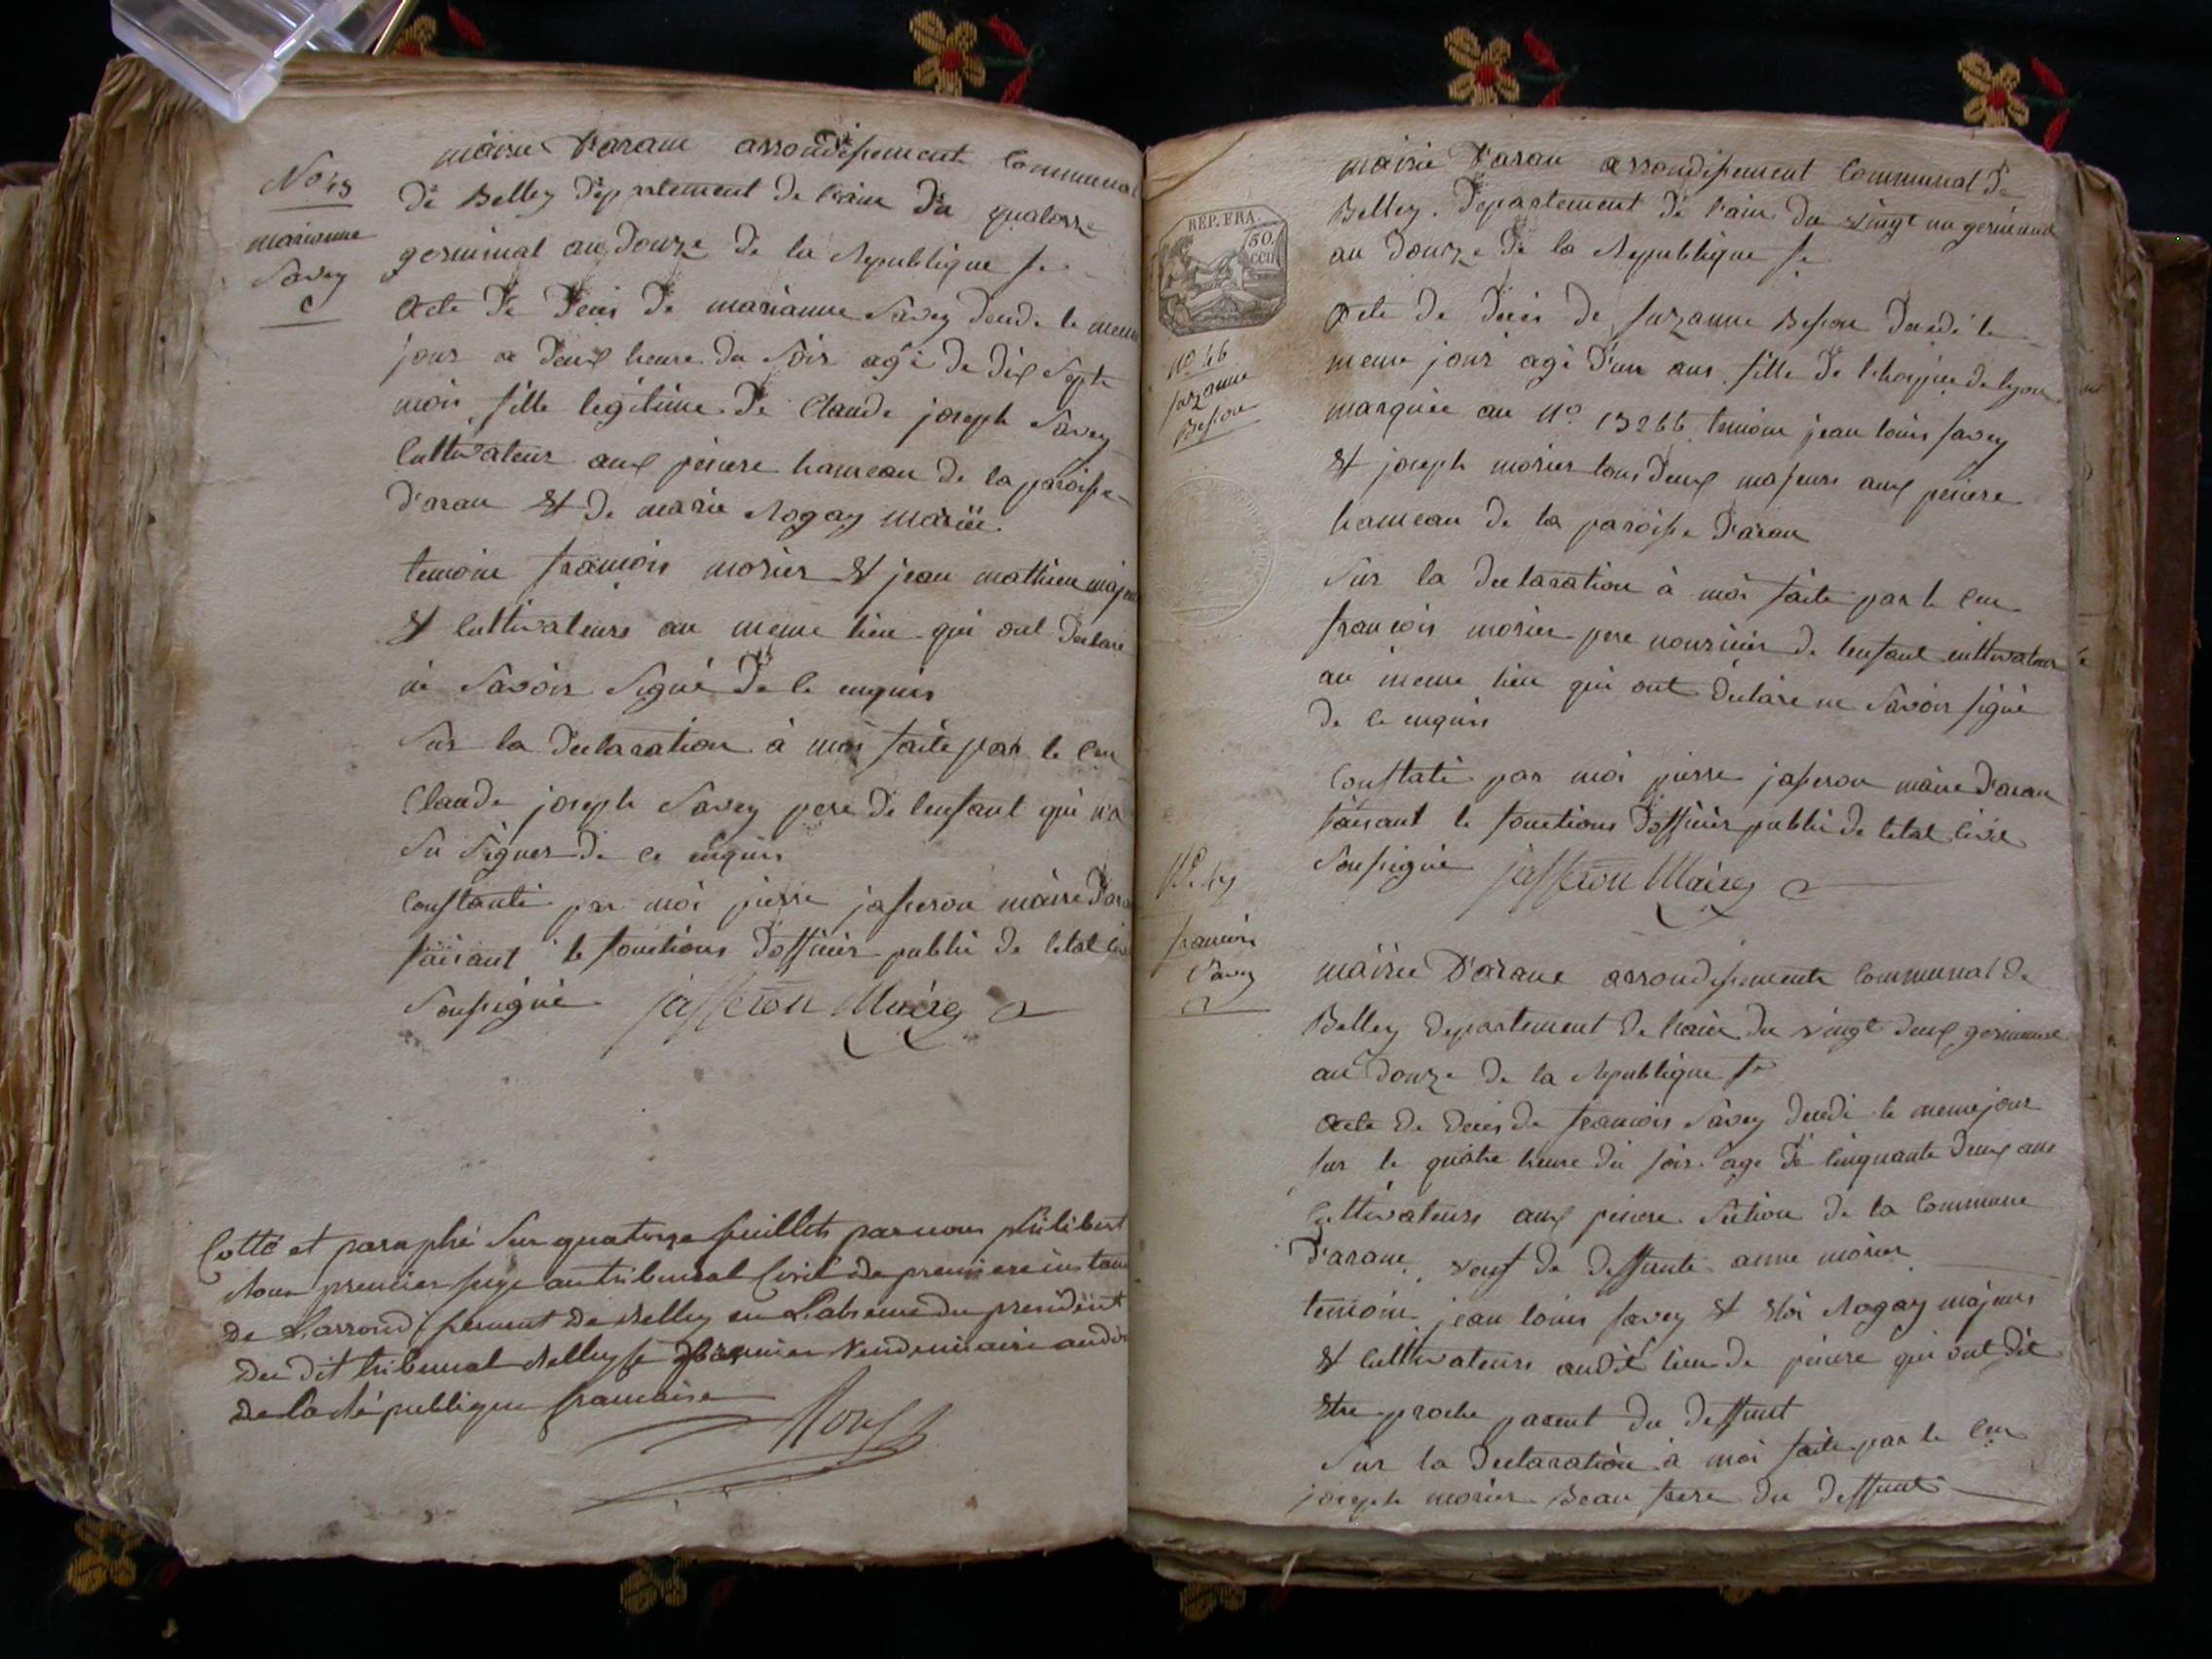 No 45
marianne
Savey
mairie D'arane arrondissement Communal
de Belley département de l'ain Du quatorze
germinal an Douze de la Republique fe
Acte De Deces De marianne Savey decede le meme
jour a Deux heure du Soir agé de dix Sept
mois fille legitime De Claude joseph Savey
Cultivateur aux pesiere hameau de la paroisse
D'aran Et De marie Nogay mariée
temoins francois morier Et jean mathieu majeu
Et Cultivateurs au meme lieu qui ont Declare
né Savoir Signé De le enquis
Sur la Declaration à moi faite par le Cen
Claude joseph Savey pere De lenfant qui n'a
Su Signer De ce enquis
Constanté par moi pierre jasseron maire D'ara
faisant le fonctions D'officier public De letat civ
Soussigné jasseron Maire
Cotté et paraphé Sur quatorze feuillets par nous philibert
premier juge au tribunal Civil de premiere instan
de L'arrondissement de Belley en L'absence du president
du dit tribunal Belley le premier Vendemiaire an
de la République francaise
REP. FRA.
50
CEN
No 46
suzanne
Besson
mairie D'aran arrondissement Communal De
Belley. Departement De l'ain Du vingt un germinal
an Douze De la Republique fe
Acte De Deces De suzanne Besson Decedé le
meme jour agé D'un ans fille De l'hospice de lyon
marquée au No 13266 temoins jean louis savey
Et joseph morier tous Deux majeurs aux pesiere
hameau De la paroisse D'aran
Sur la Declaration à moi faite par le Cen
francois morier pere nouricier De lenfant cultivateur
au meme lieu qui ont Declare ne Savoir signé
De ce enquis
Constaté par moi pierre jasseron maire D'aran
faisant le fonctions D'officier public De letat Civil
Soussigné jasseron Maire
No 47
francois
Savey
mairie D'arane arrondissement Communal De
Belley Departement De l'ain Du vingt Deux germinal
an Douze De la Republique fe
Acte De Deces De francois Savey Decedé le meme jour
sur le quatre heure Du soir agé De Cinquante Deux ans
Cultivateurs aux pesiere Section De la Commune
D'arane veuf De Deffunte anne morier
temoins jean louis savey Et Nogay majeurs
Et Cultivateurs audit lieu De pesiere qui ont Dit
Etre proche parent Du Deffunt
Sur la Declaration à moi faite par le Cen
joseph morier Beau frere Du Deffunt